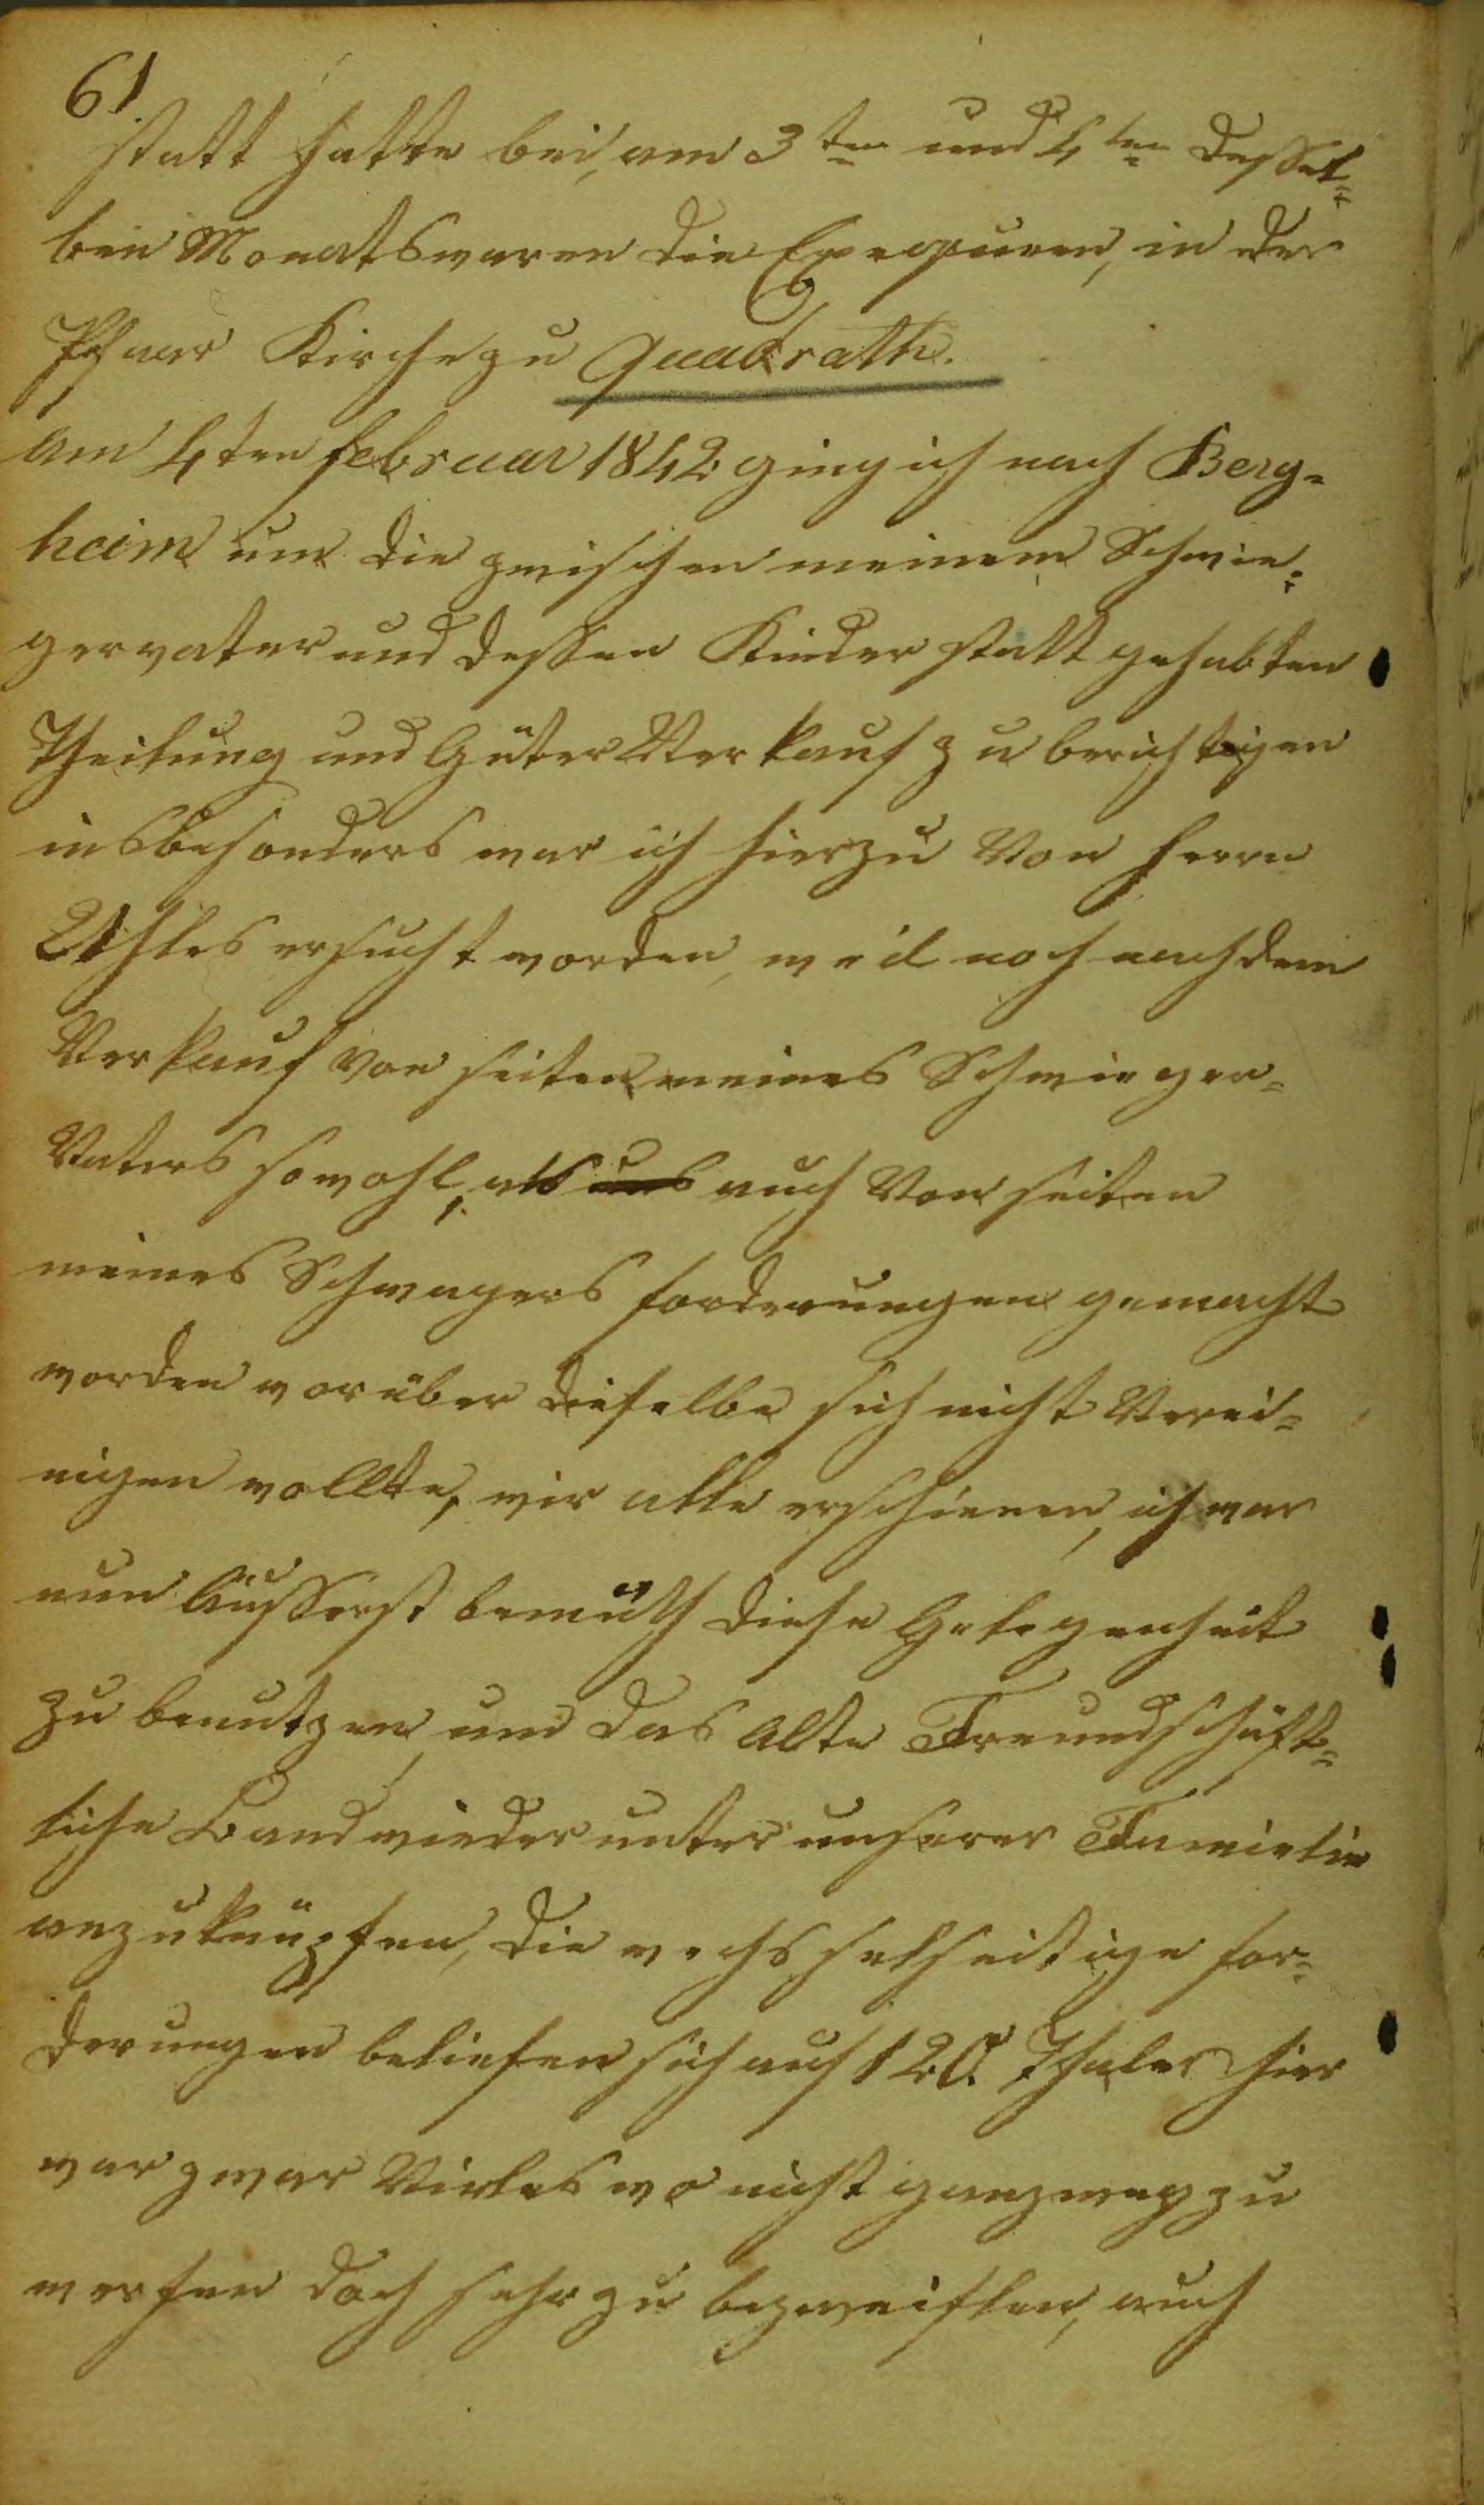 61
statt hatte bei, am 3ten und 4ten dessel=
ben Monats waren die Exequien, in der
Pfarr Kirche zu Quadrath.
am 4ten februar 1842 ging ich nach Berg=
heim um die zwischen meinem Schwie=
gervater und dessen Kinder statt gehabten
Theilung und Güter Verkauf zu berichtigen
insbesonders war ich hierzu Von Herrn
ersucht worden, weil noch nach dem
Verkauf von seiten meines Schwieger=
Vaters sowohl, als uns auch Von seiten
meines Schwagers forderungen gemacht
worden worüber dieselbe sich nicht Verei=
nigen wollte, wir alle erschienen, ich war
nun äusserst bemüth diese Gelegenheit
zu benutzen, um das alte Freundschäft=
liche Band wieder unter unserer Familie
anzuknüpfen, die wechsselseitige for=
derungen beliefen sich auf 120. Thaler hier
war zwar Vieles wo nicht ganz weg zu
werfen doch sehr zu bezweiflen, auch